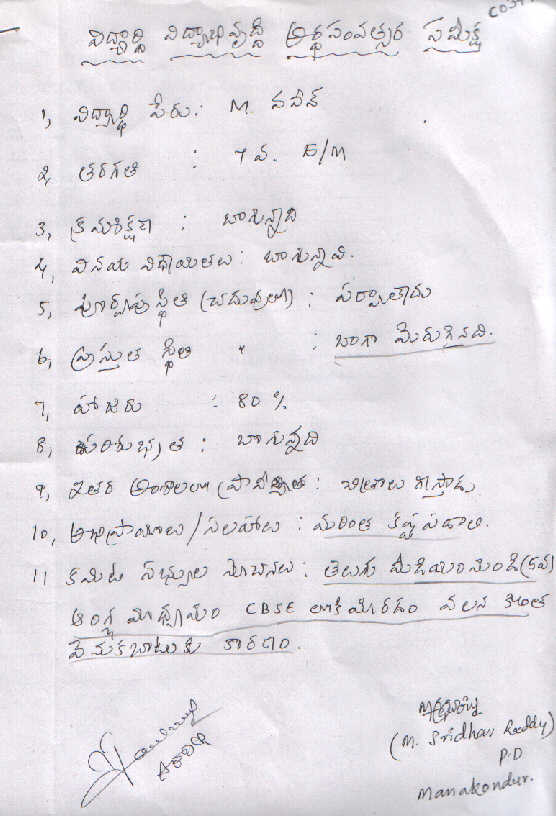 విద్యార్థి విద్యాభివృద్ధి అర్థసంవత్సర సమీక్ష
1, విద్యార్థి పేరు: M. నవీన్
2, తరగతి : 7 వ. E/M
3, క్రమశిక్షణ : బాగున్నది
4, వినయ విధాయితలు: బాగున్నవి.
5, పూర్వపుస్థితి (చదువులో) : పర్వాలేదు
6, ప్రస్తుత స్థితి " : బాగా మెరుగైనది.
7, హాజరు : 80 %
8, పరిశుభ్రత : బాగున్నది
9, ఇతర అంశాలలో ప్రావీణ్యత : చిత్రాలు గీస్తాడు
10, అభిప్రాయాలు/సలహాలు : మరింత కష్టపడాలి.
11 కమిటి సభ్యుల సూచనలు: తెలుగు మీడియం నుండి (6వ)
ఆంగ్ల మాధ్యమం CBSE లోకి మారడం వలన కొంత
వెనుకబాటుకు కారణం.
(M. Sridhar Reddy)
P.D
Manakondur.